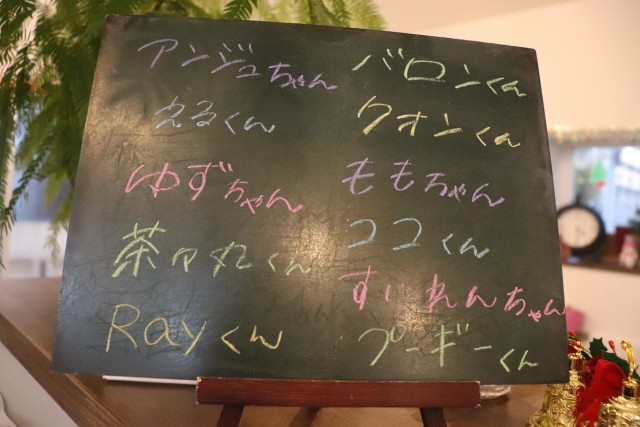 アンジュちゃん
えるくん
ゆずちゃん
茶々丸くん
Rayくん
バロンくん
クオンくん
ももちゃん
ココくん
すいれんちゃん
プーギーくん